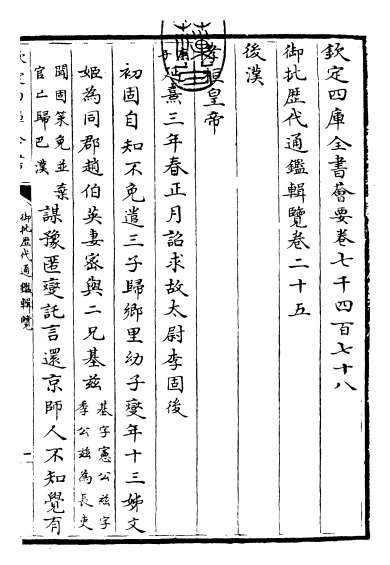 欽定四庫全書薈要卷七千四百七十八
御批歴代通鑑輯覽卷二十五
後漢
桓皇帝
延熹三年春正月詔求故太尉李固後
初固自知不免遣三子歸鄉里幼子燮年十三姊文
姬為同郡趙伯英妻密與二兄基茲
基字憲公茲字
季公茲為長吏
聞固策免並棄
官亡歸巴漢
謀豫匿燮託言還京師人不知覺有
御批歴代通鑑輯覽
一